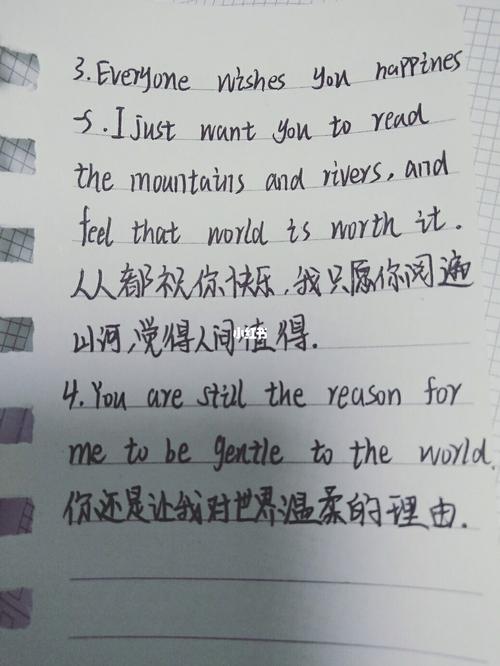 3.Everyone wishes you happines
s.I just want you to read
the mountains and rivers, and
feel that world is worth it.
人人都祝你快乐,我只愿你阅遍
山河,觉得人间值得.
小红书
4.You are still the reason for
me to be gentle to the world.
你还是让我对世界温柔的理由.